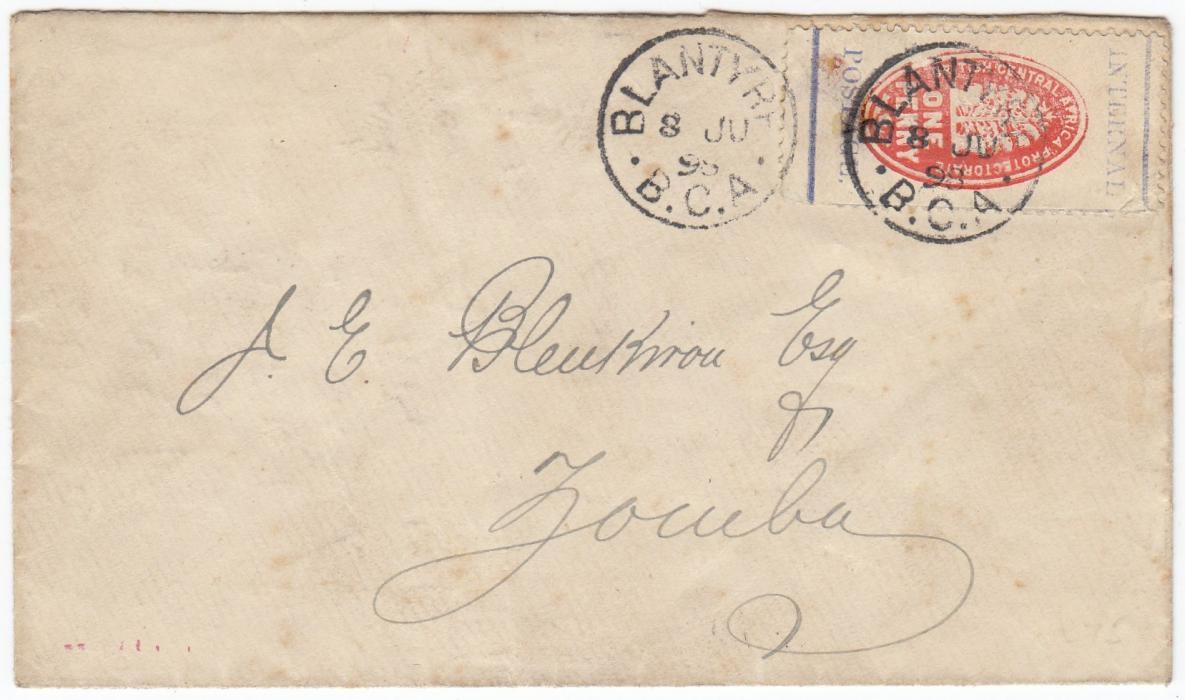 BLANTYRE
8 JU
98
B.C.A
INTERNAL
POSTAGE
BRITISH CENTRAL AFRICA PROTECTORATE
ONE
PENNY
BLANTYRE
8 JU
98
B.C.A
J. E. Blenkiron Esq
Zomba